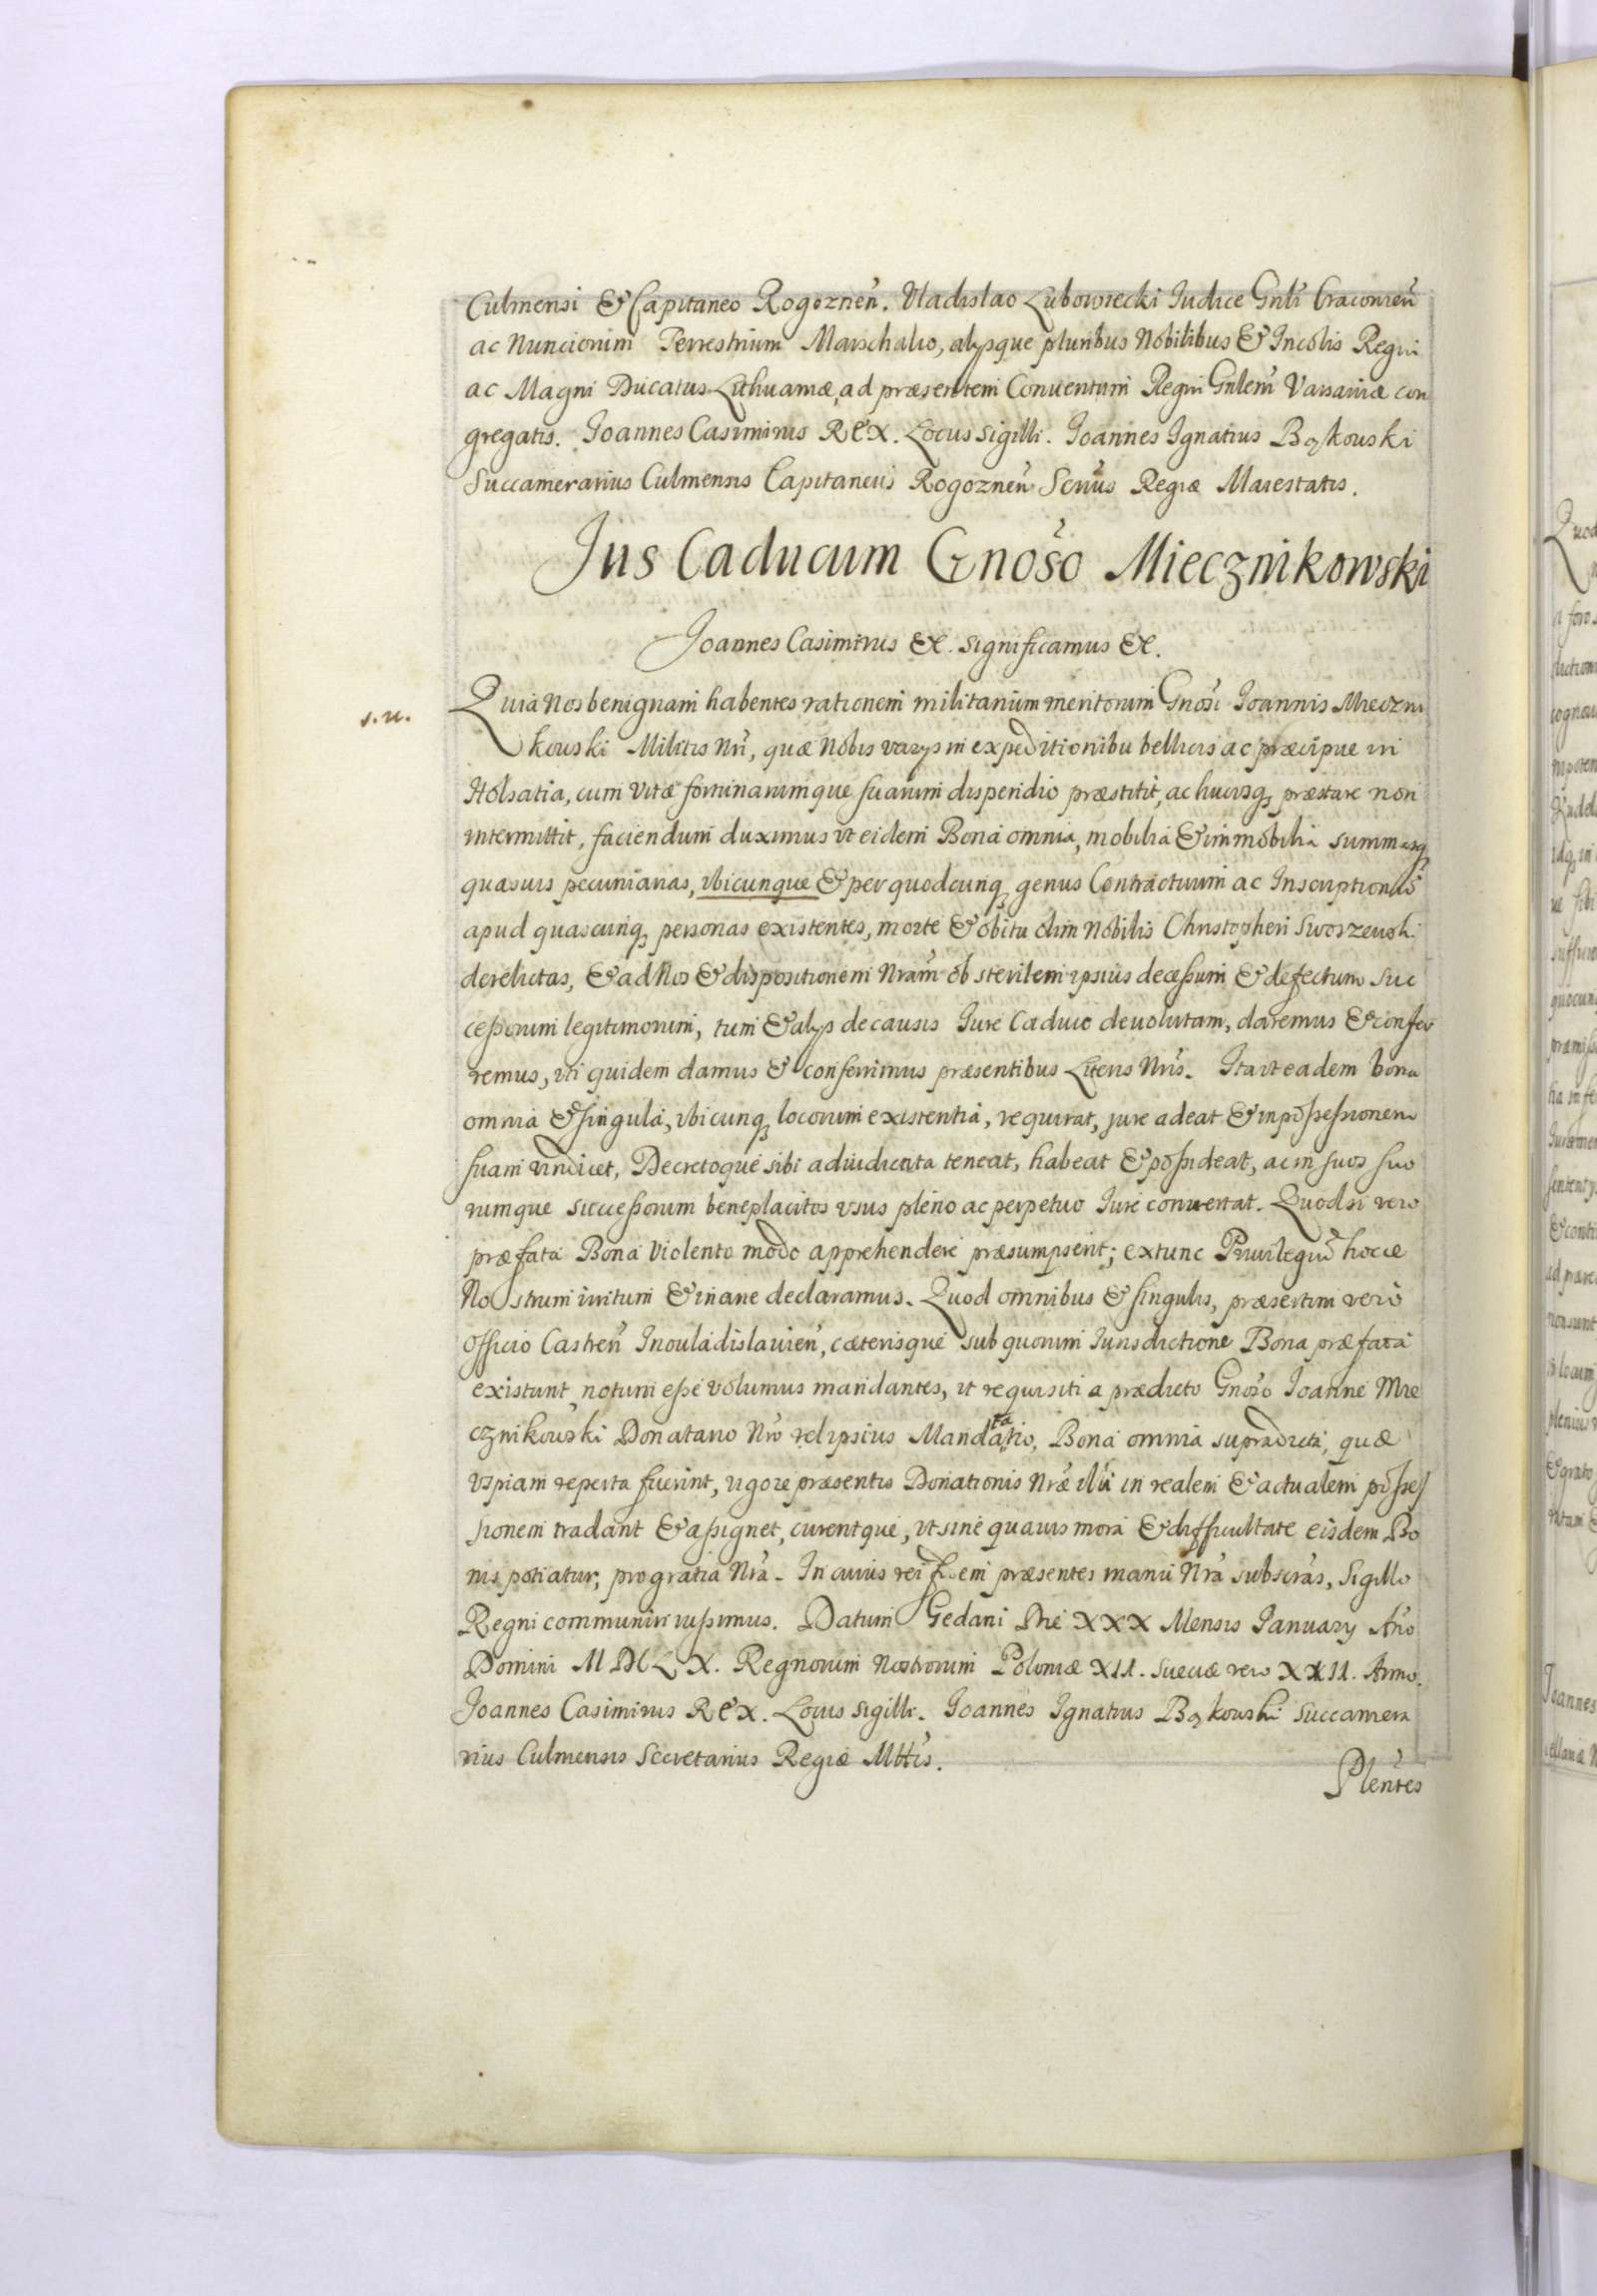 Culmensi & Capitaneo Rogoznen̄. Vladislao Lubowiecki Iudice Gnli Cracouien̄
ac Nunciorum Terrestrium Marschalio, alysque pluribus Nobilibus & Incolis Regni
ac Magni Ducatus Lithuaniæ, ad præsentem Conuentum Regni Gnlem Varsauiæ con
gregatis. Joannes Casimirus REX. Locus Sigilli. Joannes Ignatius Bąkouski
Succamerarius Culmensis Capitaneus Rogoznen̄ Scrius Regiæ Maiestatis.
Jus Caducum Gnoso Miecznikowski
Joannes Casimirus &c. significamus &c.
s. n.
Quia Nos benignam habentes rationem militarium meritorum Gnosi Joannis Mieczni
kouski Militis Nri, quæ Nobis varys in expeditionibu bellicis ac præcipue in
Holsatia, cum vitæ fortunarumque suarum disperidio præstitit, ac hucusq, præstare non
intermittit, faciendum duximus vt eidem Bona omnia, mobilia & immobilia summasq
quasuis pecuniarias, vbicunque & per quodcunq, genus Contractuum ac Inscriptionūs
apud quascunq, personas existentes, morte & obitu olim Nobilis Christopheri Sworzewski
derelictas, & ad Nos & dispositionem Nram ob sterilem ipsius decessum & defectum suc
cessorum legitimorum, tum & alys de causis Jure Caduco deuolutam, daremus & confer
remus, vti quidem damus & conferimus præsentibus Literis Nris. Ita vt eadem bona
omnia & singula, vbicunq, locorum existentia, requirat, jure adeat & in possessionem
suam vindicet, Decretoque sibi adiudicata teneat, habeat & possideat, ac in suos suo
rumque successorum beneplacitos vsus pleno ac perpetuo Jure conuertat. Quodsi vero
præfata Bona violento modo apprehendere præsumpserit; extunc Priuilegiu hocce
Nostrum irritum & inane declaramus. Quod omnibus & singulis, præsertim vero
Officio Castren̄ Inouladislauien̄, cæterisque sub quorum Jurisdictione Bona præfata
existunt, notum esse volumus mandantes, vt requisiti a prædicto Gnoso Joanne Mie
cznikouski Donatario Nro vel ipsius Mandatario, Bona omnia supradicta, quæ
vspiam reperta fuerint, vigore præsentis Donationis Nræ illi in realem & actualem posses
sionem tradant & assignet, curentque, vt sine quauis mora & difficultate eisdem Bo
nis potiatur, pro gratia Nra. In cuius rei fidem præsentes manu Nra subscras, Sigillo
Regni communiri iussimus. Datum Gedani Die XXX Mensis January Ano
Domini MDCLX. Regnorum Nostrorum Poloniæ XII. Sueciæ vero XXII. Anno.
Joannes Casimirus REX. Locus Sigilli. Joannes Ignatius Bąkouski Succamera
rius Culmensis Secretarius Regiæ Mttis.
Plentes